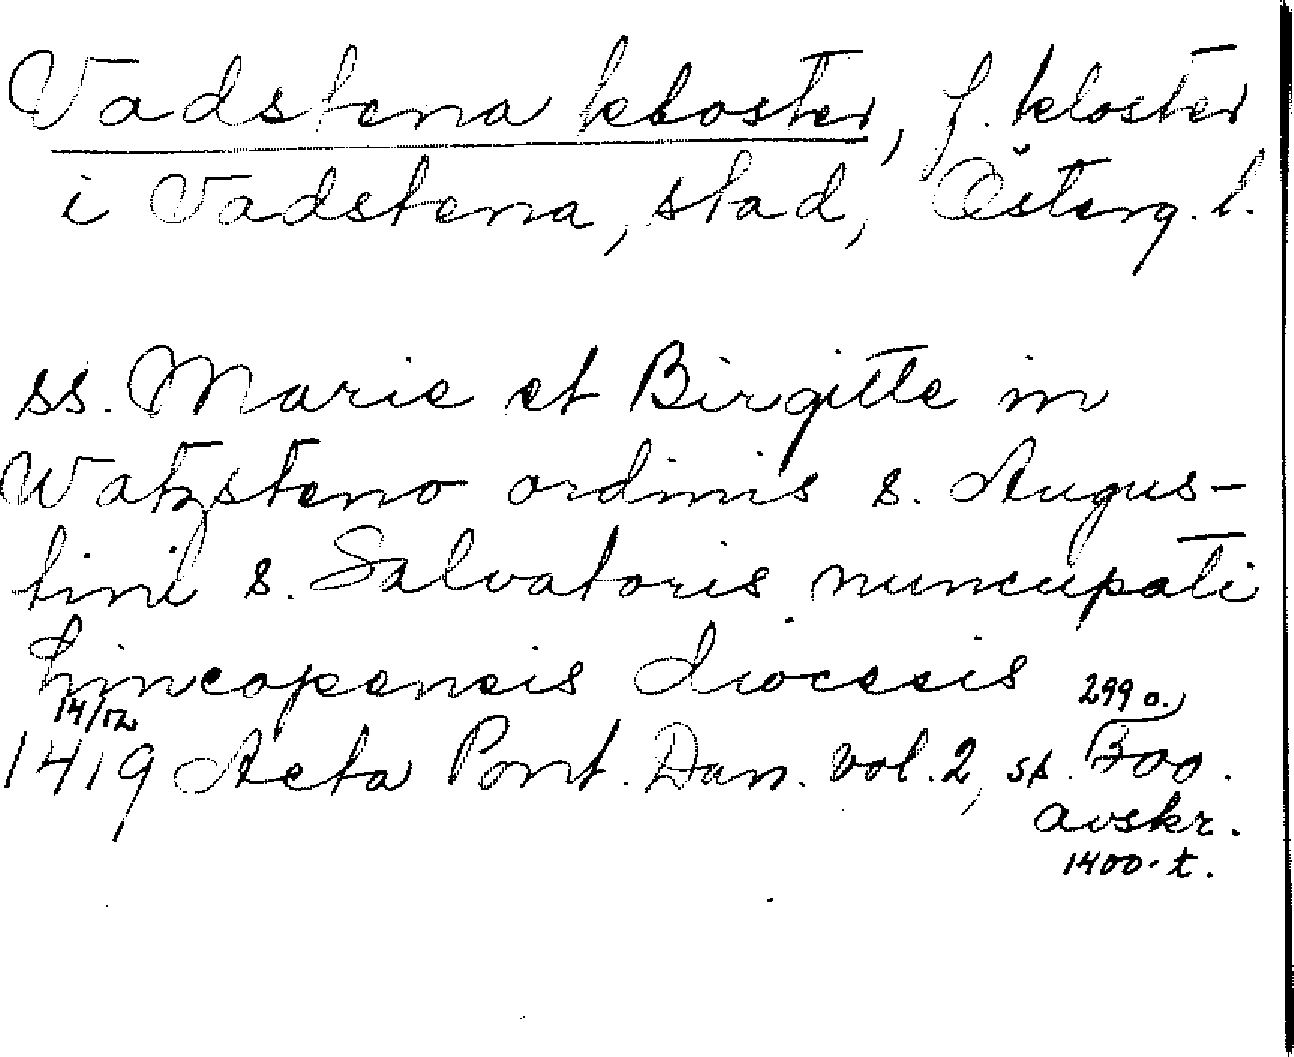 Vadstena kloster, f. kloster
i Vadstena, stad, Österg. l.
ss. Marie et Birgitte in
Watzsteno ordinis s. Augus-
tini s. Salvatoris nuncupati
Lincopensis diocesis
14/12 299 o.
1419 Acta Pont. Dan. vol. 2, s. 300.
avskr.
1400-t.